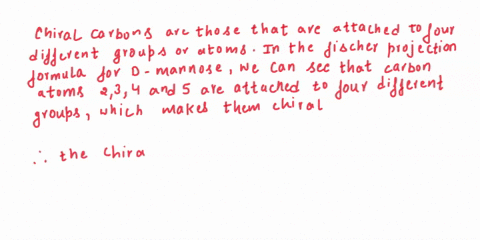 Chiral carbons are those that are attached to four
different groups or atoms. In the fischer projection
formula for D-mannose, we can see that carbon
atoms 2,3,4 and 5 are attached to four different
groups, which makes them chiral
∴ the chira